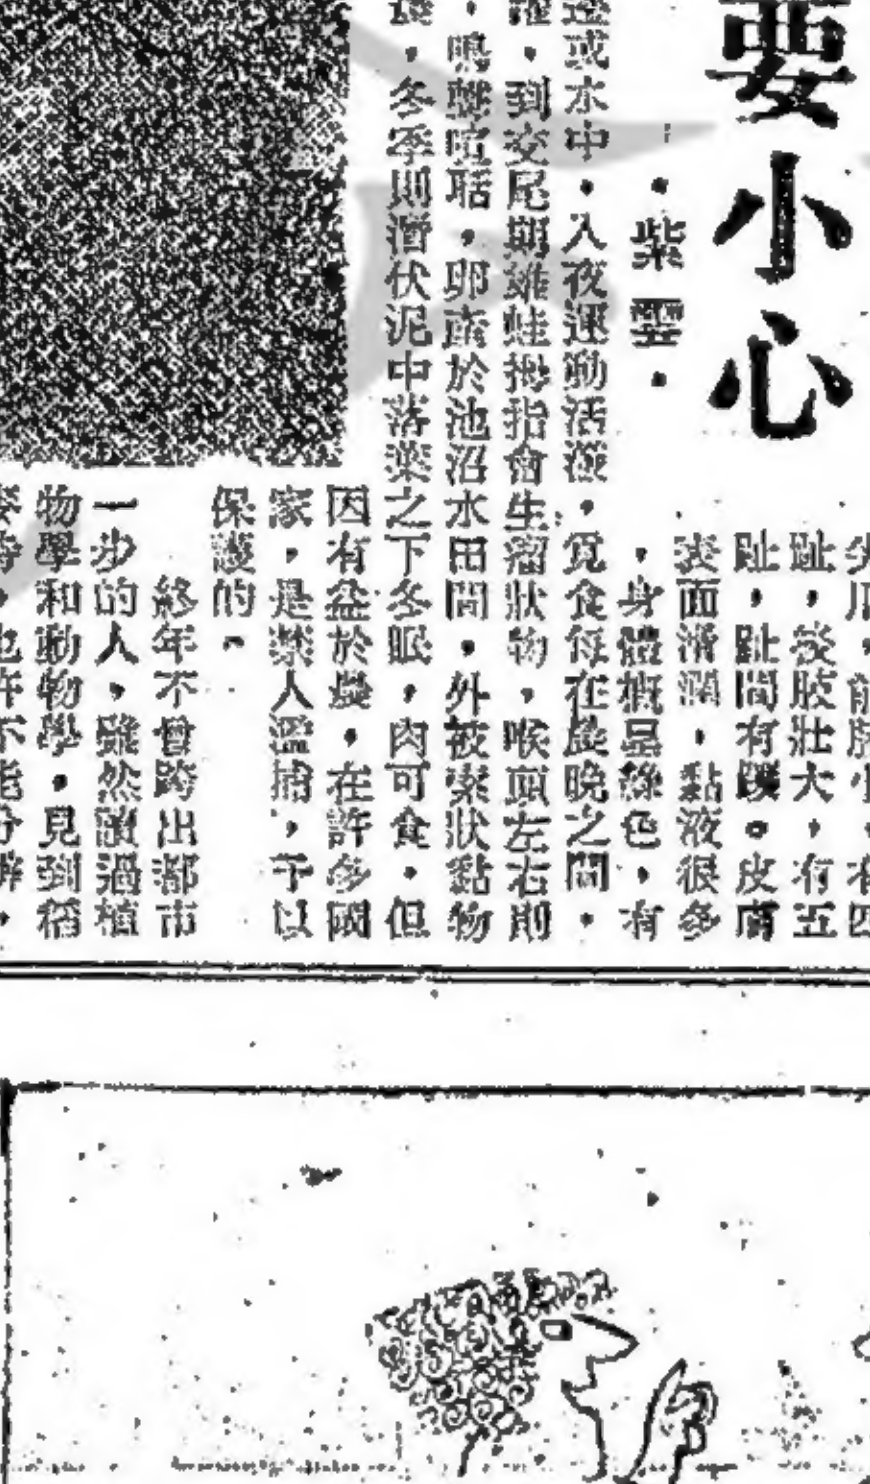 要小心
・紫雲・
尖爪，前肢小，有四
趾，後肢壯大，有五
趾，趾間有蹼。皮膚
表面滑潤，黏液很多
，身體概呈綠色，有
或水中，入夜運動活潑，覓食每在晨晚之間，
，到交尾期雄蛙拇指會生瘤狀物，喉頭左右則
，鳴聲喧聒，卵產於池沼水田間，外被索狀黏物
，冬季則潛伏泥中落葉之下冬眠，肉可食，但
因有益於農，在許多國
家，是禁人濫捕，予以
保護的。
終年不曾跨出都市
一步的人，雖然讀過植
物學和動物學，見到稻
，也許不能分辨，